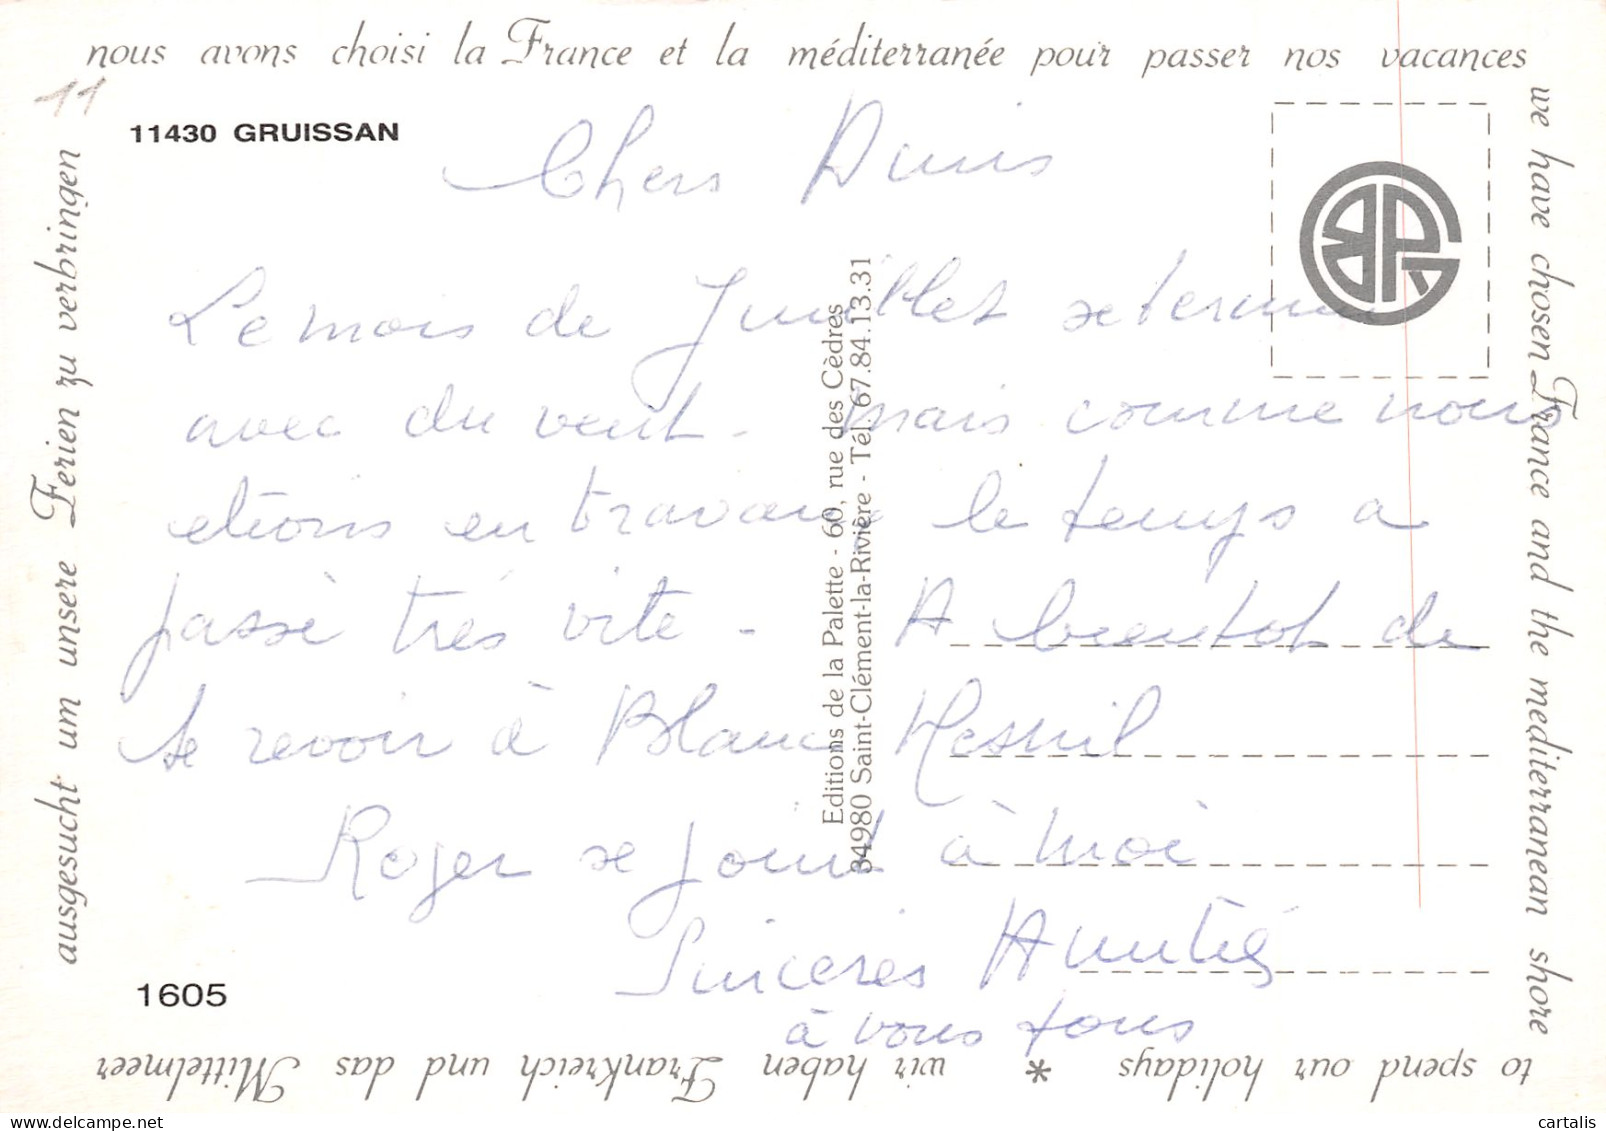 nous avons choisi la France et la méditerranée pour passer nos vacances
we have chosen France and the mediterranean shore
to spend our holidays * wir haben Frankreich und das Mittelmeer
ausgesucht um unsere Ferien zu verbringen
11
11430 GRUISSAN
Chers Amis
Le mois de Juillet se termine
avec du vent. mais comme nous
etions en travaux le temps a
passè très vite - A bientot de
se revoir à Blanc Mesnil
Roger se joint à moi
Sincères Amitiés
à vous tous
Editions de la Palette - 60, rue des Cèdres
34980 Saint-Clément-la-Rivière - Tél. 67.84.13.31
1605
cartalis
delcampe.net